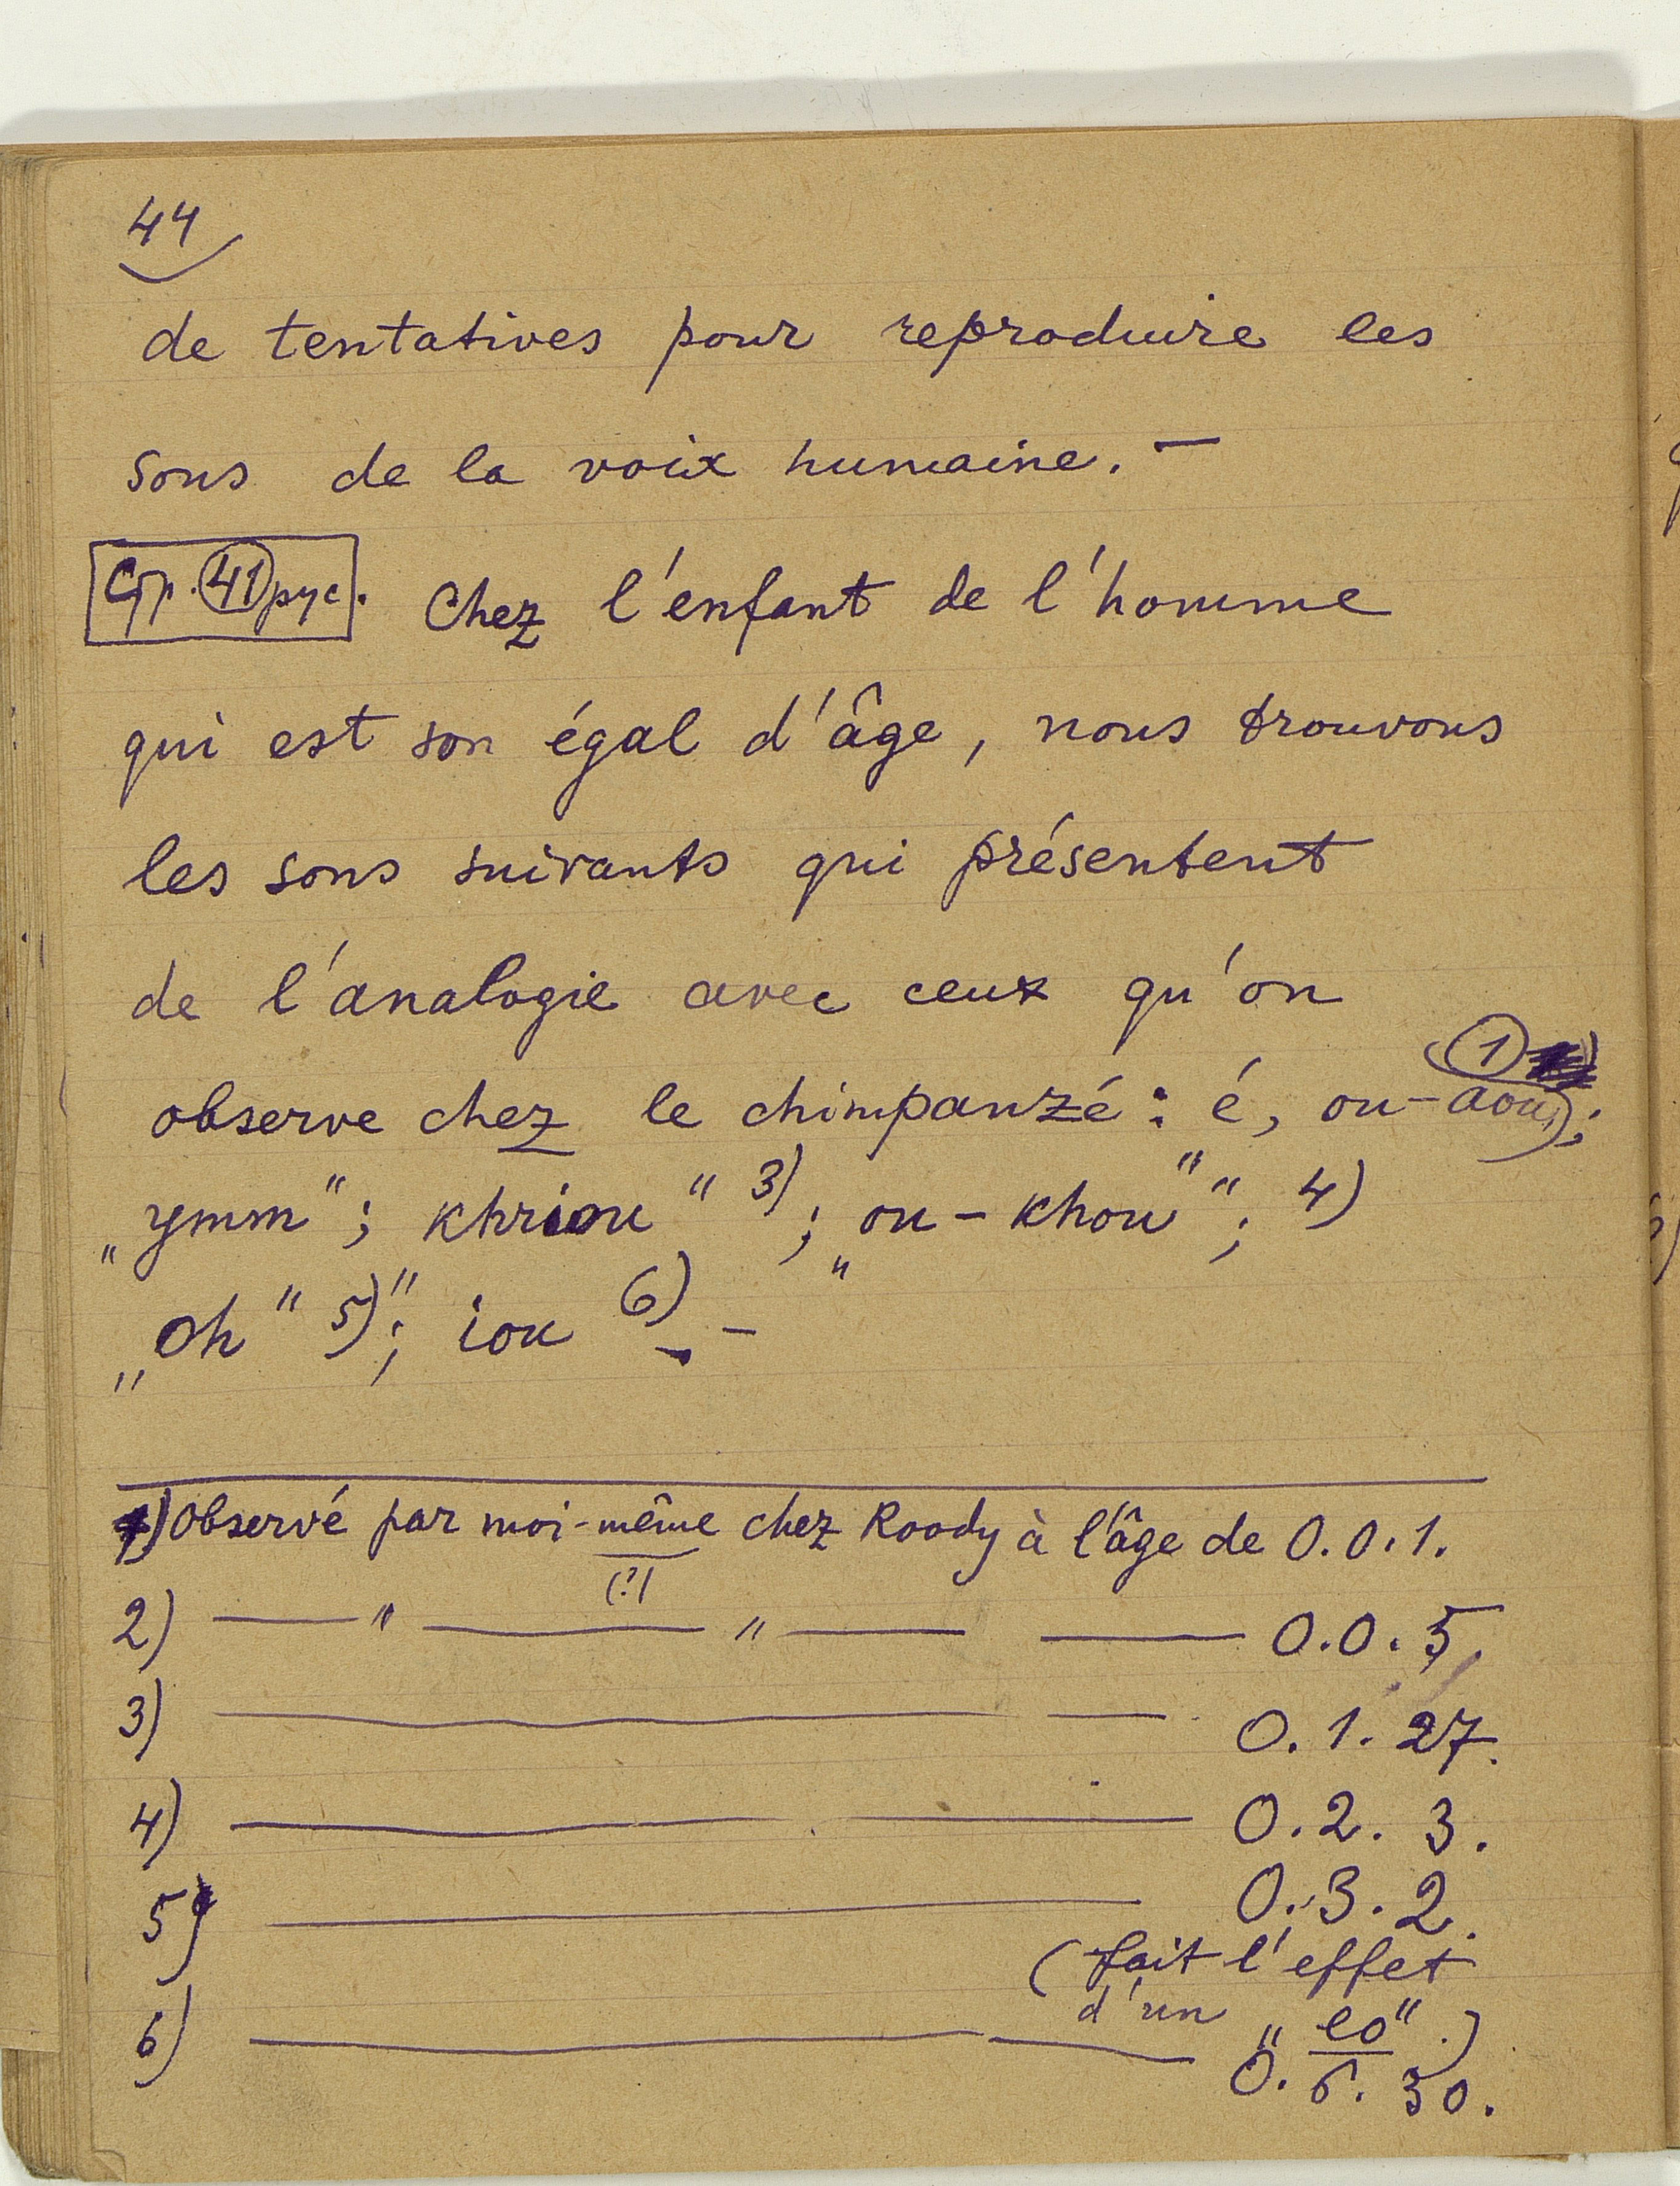 44
de tentatives pour reproduire les
sons de la voix humaine. —
Стр. 41 рус. Chez l'enfant de l'homme
qui est son égal d'âge, nous trouvons
les sons suivants qui présentent
de l'analogie avec ceux qu'on
observe chez le chimpanzé : é, ou-aou 1);
„ymm"; khriou" 3); „ou-khou""; 4)
„oh" 5)"; iou 6). —
1) Observé par moi-même chez Roody à l'âge de 0.0.1.
(?)
2) — " — " — — 0.0.5.
3) — — 0.1.27.
4) — — 0.2.3.
5) — 0.3.2.
(fait l'effet
d'un „eo".)
6) — — 0.6.30.